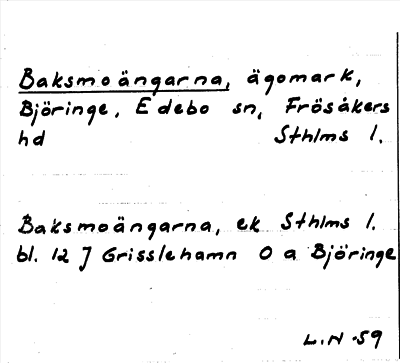 Baksmoängarna, ägomark,
Björinge, Edebo sn, Frösåkers
hd Sthlms l.
Baksmoängarna, ek. Sthlms l.
bl. 12 J Grisslehamn O a Björinge
L.N -59